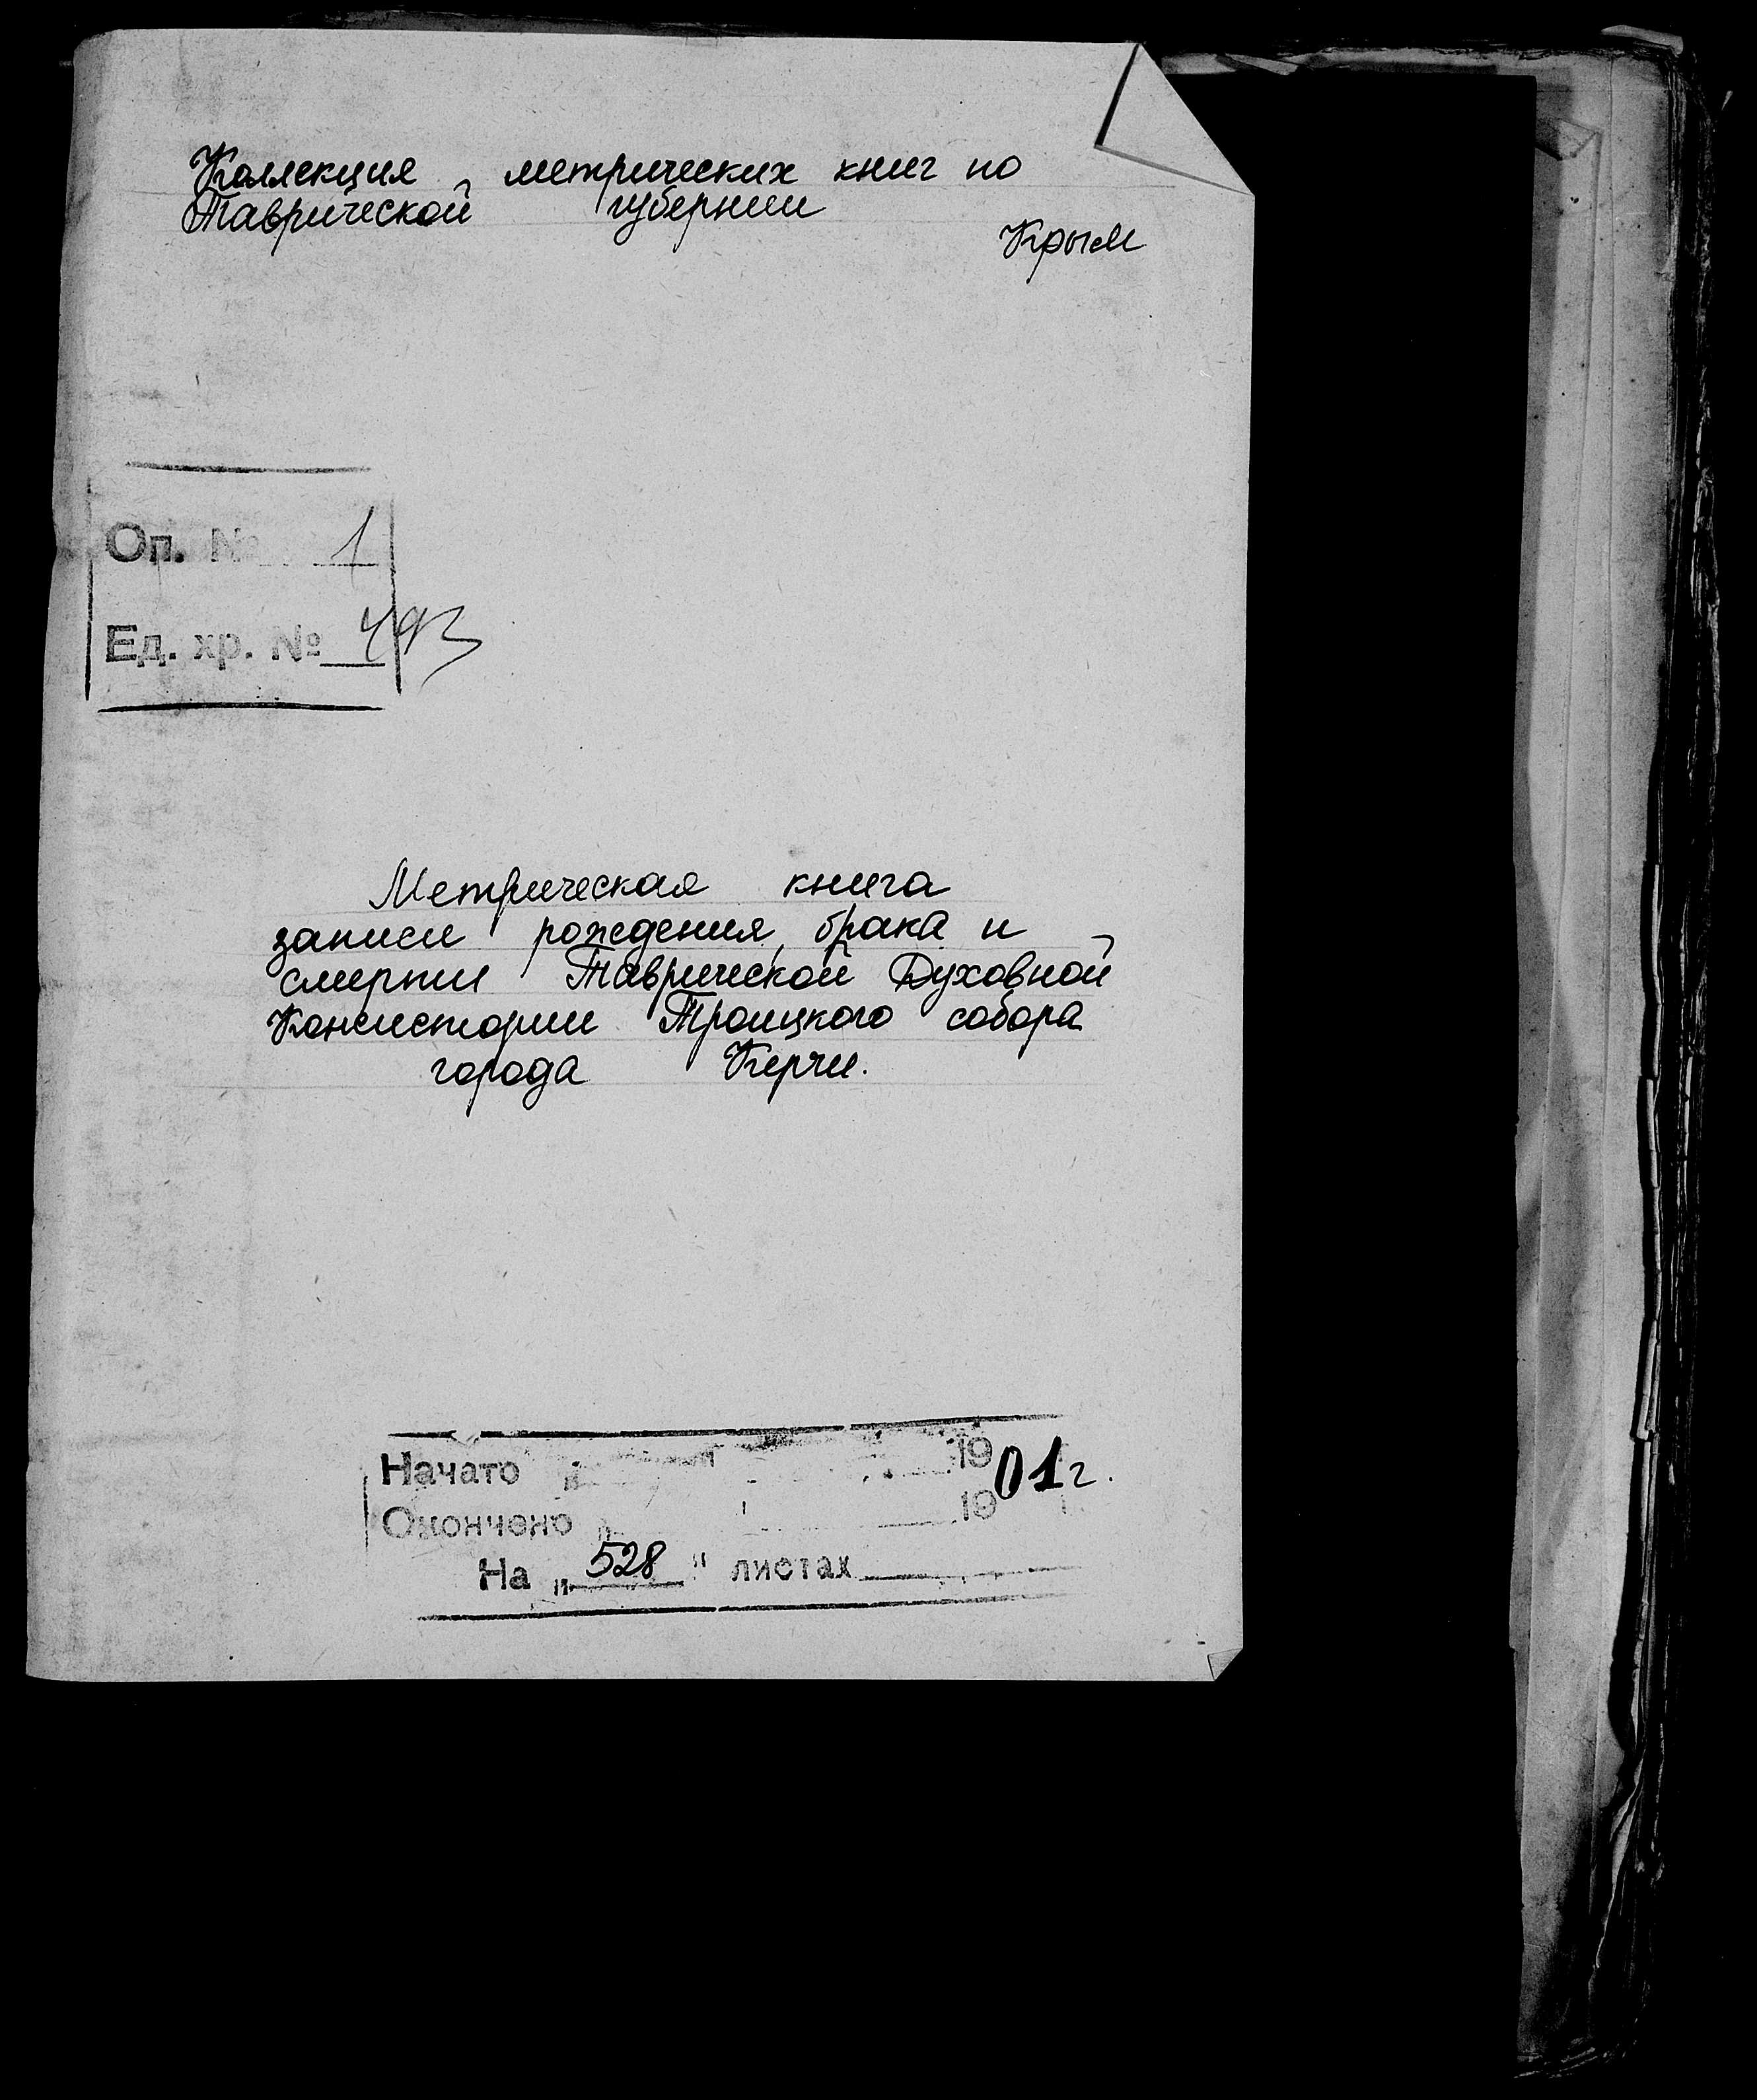 Коллекция метрических книг по
Таврической губернии
Крым
Оп. № 1
Ед. хр. № 493
Метрическая книга
записи рождения, брака и
смерти Таврической Духовной
Консистории Троицкого собора
города Керчи.
Начато " " 1901 г.
Окончено " " 19
На „528" листах